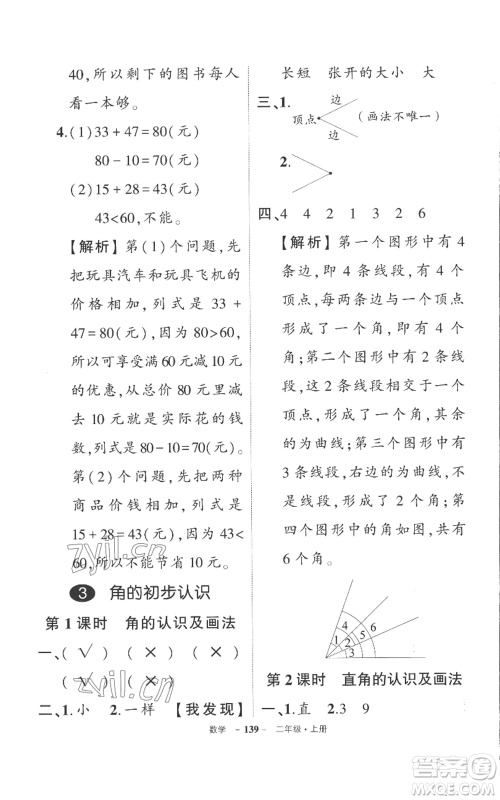 40,所以剩下的图书每人
看一本够。
4.(1)33+47=80(元)
80-10=70(元)
(2)15+28=43(元)
43<60,不能。
【解析】第(1)个问题,先
把玩具汽车和玩具飞机的
价格相加,列式是 33+
47=80(元),因为80>60,
所以可享受满60元减10元
的优惠,从总数80元里减
去10元,就是实际花的钱
数,列式是80-10=70(元)。
第(2)个问题,把两种
商品价钱相加,列式是
15+28=43(元),因为43<
60,所以不能节省10元。
3 角的初步认识
第1课时 角的认识及画法
一、(√) (×) (×)
(×) (√) (×)
二、1.小 2.一样 【我发现】
长短 张开的大小 大
三、1. 顶点 边 边 (画法不唯一)
2.
四、4 4 2 1 3 2 6
【解析】第一个图形中有4
条边,即4条线段,有4个
顶点,每两条边与一个顶点
形成了一个角,共有4个
角;第二个图形中有2条线
段,这2条线段相交于一个
顶点,形成了1个角,其余
的为曲线;第三个图形有3
条线段,右边的为曲线,有2
个角;第四个图形中的角如图,共有
6个角。
1 2 3 4 5 6
第2课时 直角的认识及画法
一、1.直 2.3 9
数学 - 139 - 二年级·上册
zyjl.cn
zyjl.cn